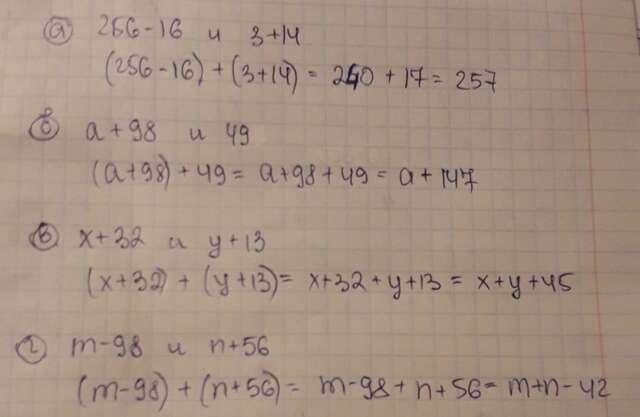 а) 256-16 и 3+14
(256-16)+(3+14)=240+17=257
б) a+98 и 49
(a+98)+49=a+98+49=a+147
в) x+32 и y+13
(x+32)+(y+13)=x+32+y+13=x+y+45
г) m-98 и n+56
(m-98)+(n+56)=m-98+n+56=m+n-42